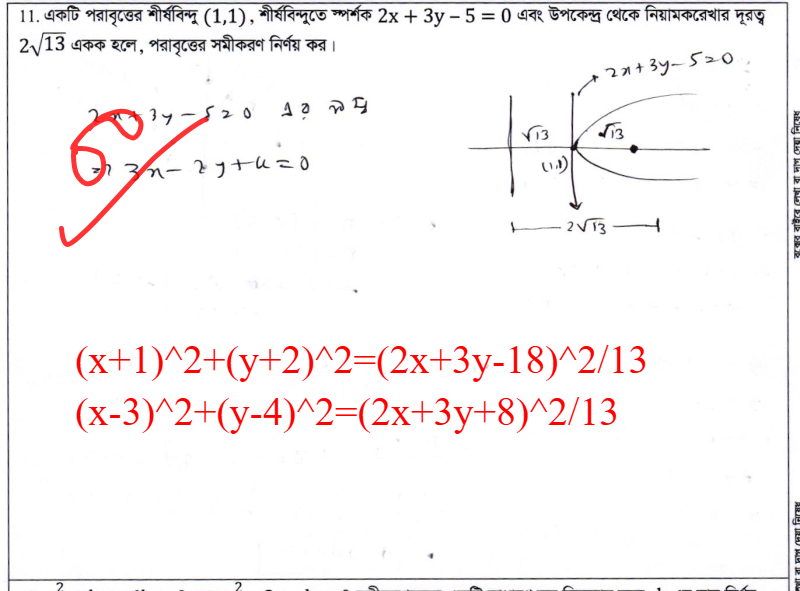 11. একটি পরাবৃত্তের শীর্ষবিন্দু (1,1), শীর্ষবিন্দুতে স্পর্শক 2x + 3y − 5 = 0 এবং উপকেন্দ্র থেকে নিয়ামকরেখার দূরত্ব
2√13 একক হলে, পরাবৃত্তের সমীকরণ নির্ণয় কর।
2x+3y-5=0
2x+3y-5=0 এর লম্ব
√13 √13
⇒ 3x-2y+k=0
(1,1)
2√13
(x+1)^2+(y+2)^2=(2x+3y-18)^2/13
(x-3)^2+(y-4)^2=(2x+3y+8)^2/13